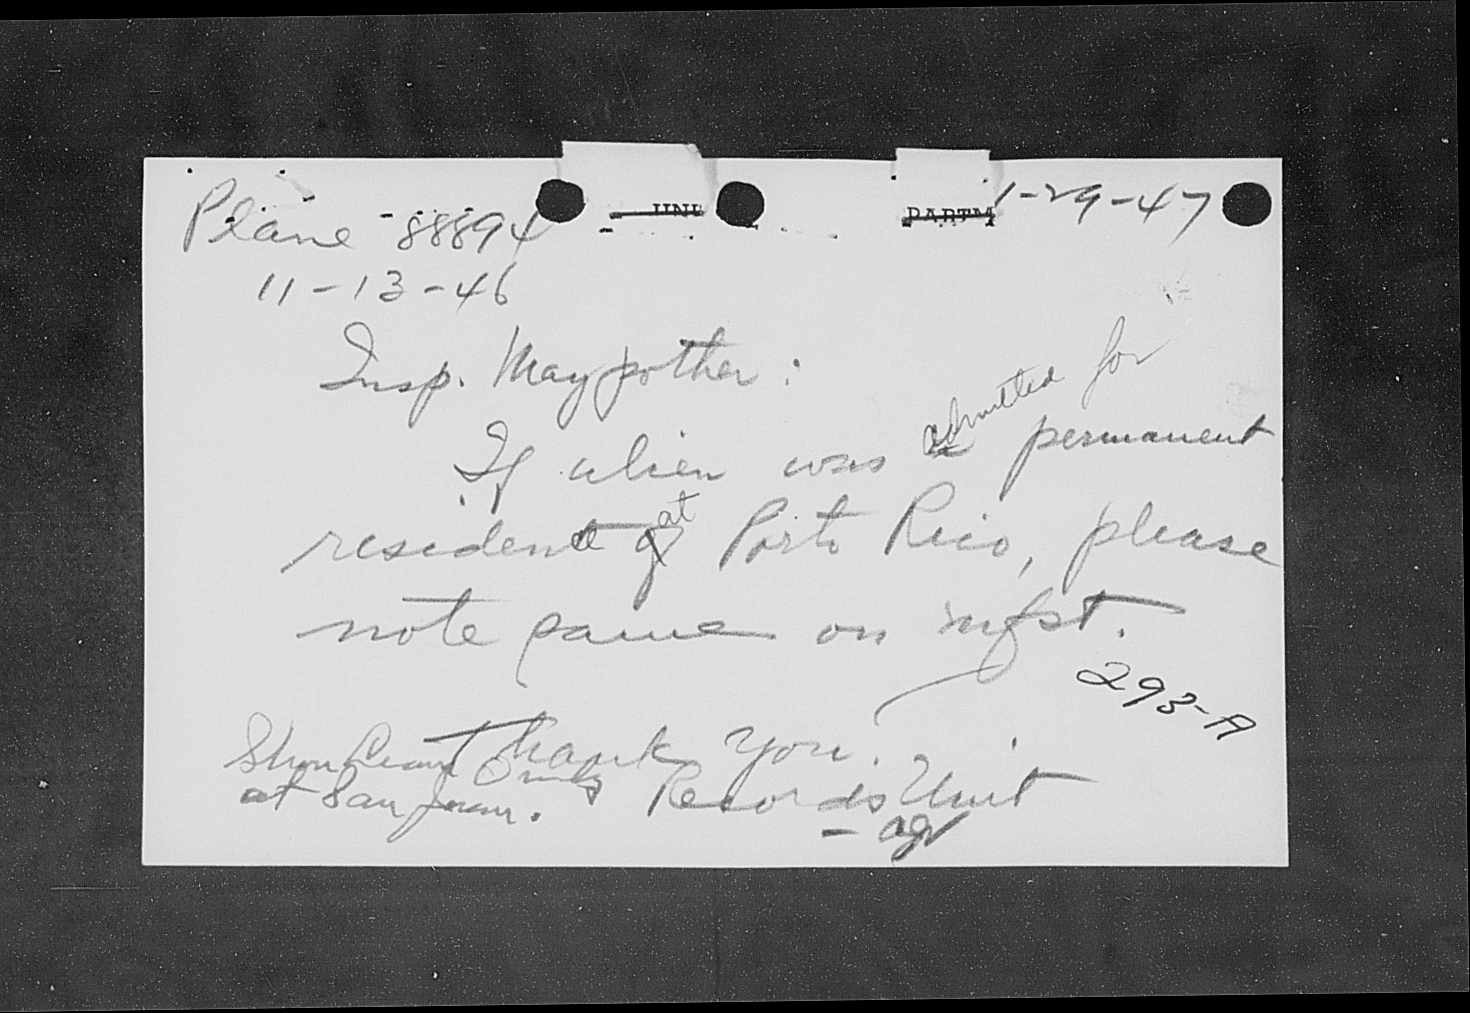 Plane - 88894
UNI
PARTM
1-29-47
11-13-46
Insp. Maypother:
admitted for
If alien was permanent
residence at Porto Rico, please
note same on mfst.
293-A
Thank you.
at San Juan.
Records Unit
- agr